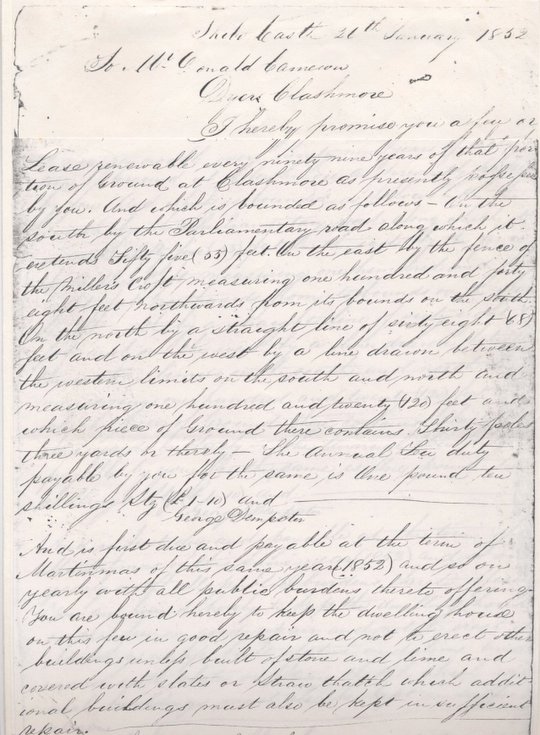 Skibo Castle 26th January 1852
To Mr Donald Cameron
Dyer Clashmore
I hereby promise you a feu or
Lease renewable every ninety nine years of that por
tion of Ground at Clashmore as presently possessed
by you. And which is bounded as follows - On the
south by the Parliamentary road along which it
extends Fifty five (55) feet. On the east by the fence of
the Millers Croft measuring one hundred and forty
eight feet northwards from its bounds on the south.
On the north by a straight line of sixty eight (68)
feet and on the west by a line drawn between
the western limits on the south and north and
measuring one hundred and twenty (120) feet and
which piece of Ground there contains Thirty poles
three yards or thereby - The Annual Feu duty
payable by you for the same is One pound ten
shillings Stg (£1-10) and
George Dempster
And is first due and payable at the term of
Martinmas of this same year (1852) and so on
yearly with all public burdens thereto offering
You are bound hereby to keep the dwelling house
on this feu in good repair and not to erect other
buildings unless built of stone and lime and
covered with slates or straw thatch which addit
ional buildings must also be kept in sufficient
repair.